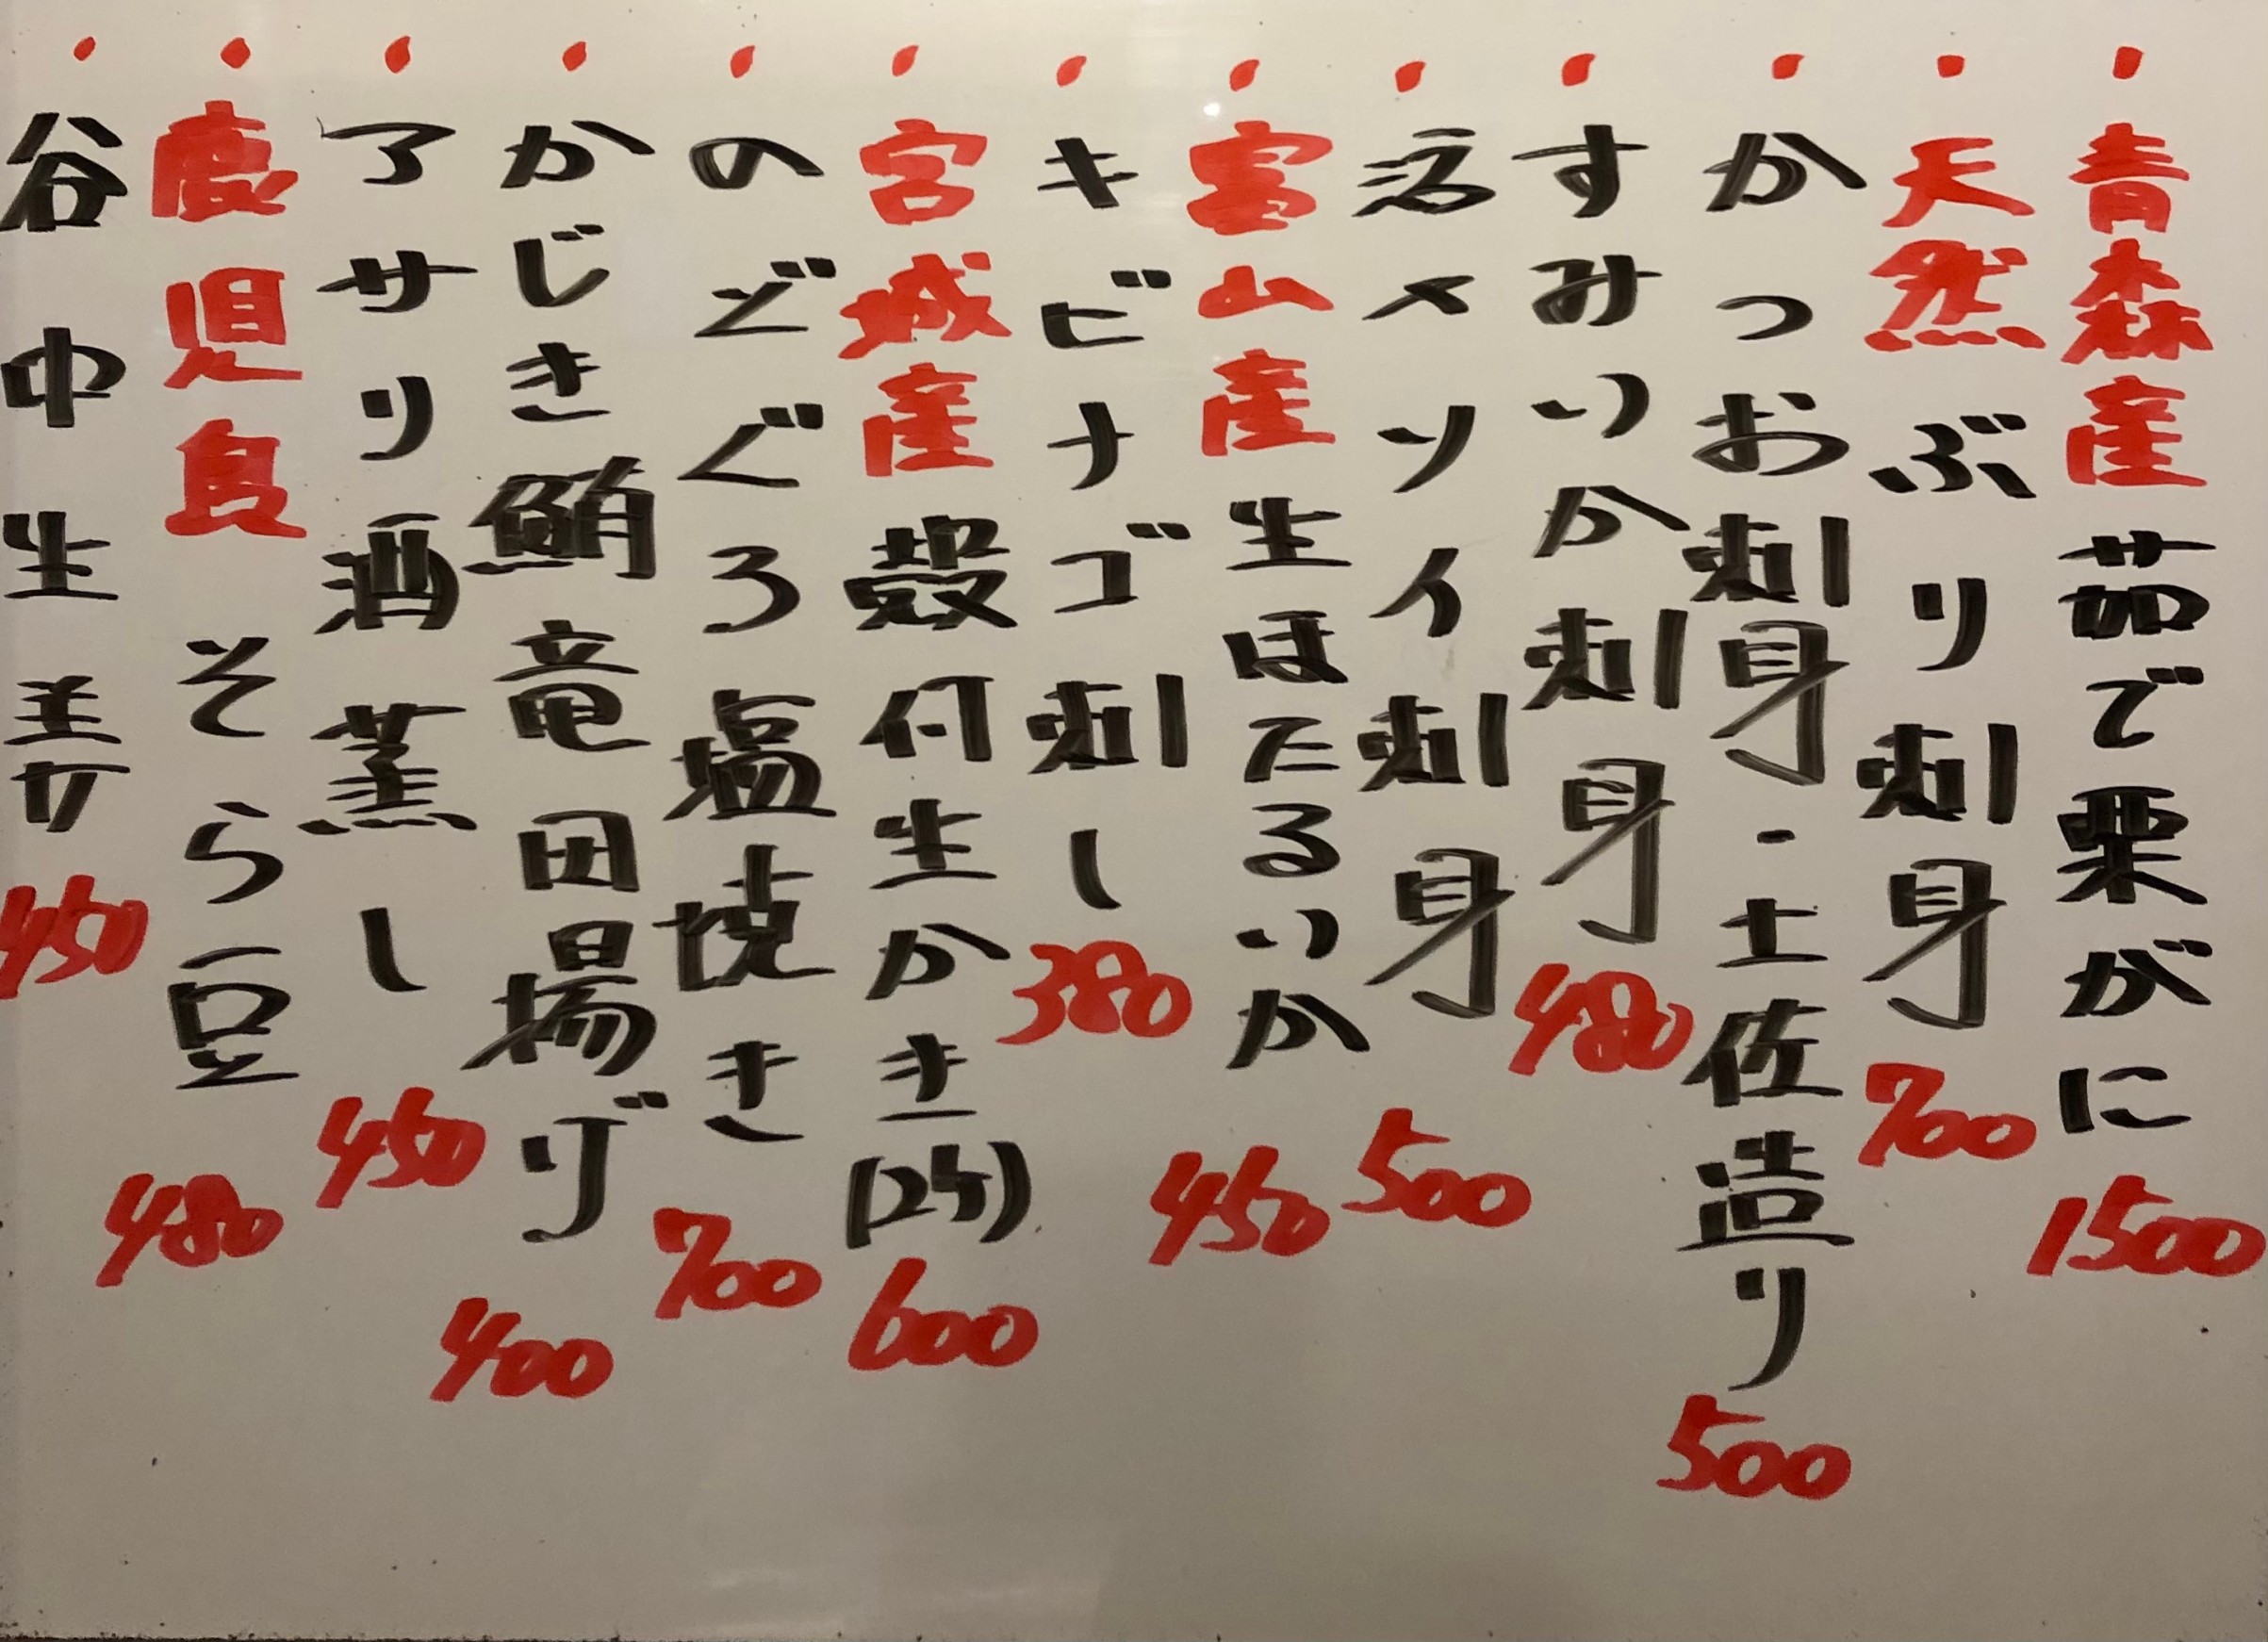 ・青森産茹で栗がに 1500
・天然ぶり刺身 700
・かつお刺身・土佐造り 500
・すみいか刺身 480
・活〆ソイ刺身 500
・富山産生ほたるいか 450
・キビナゴ刺し 380
・宮城産殻付生かき(2ケ) 600
・のどぐろ塩焼き 700
・かじき鮪竜田揚げ 400
・アサリ酒蒸し 450
・鹿児島そら豆 480
・谷中生姜 450